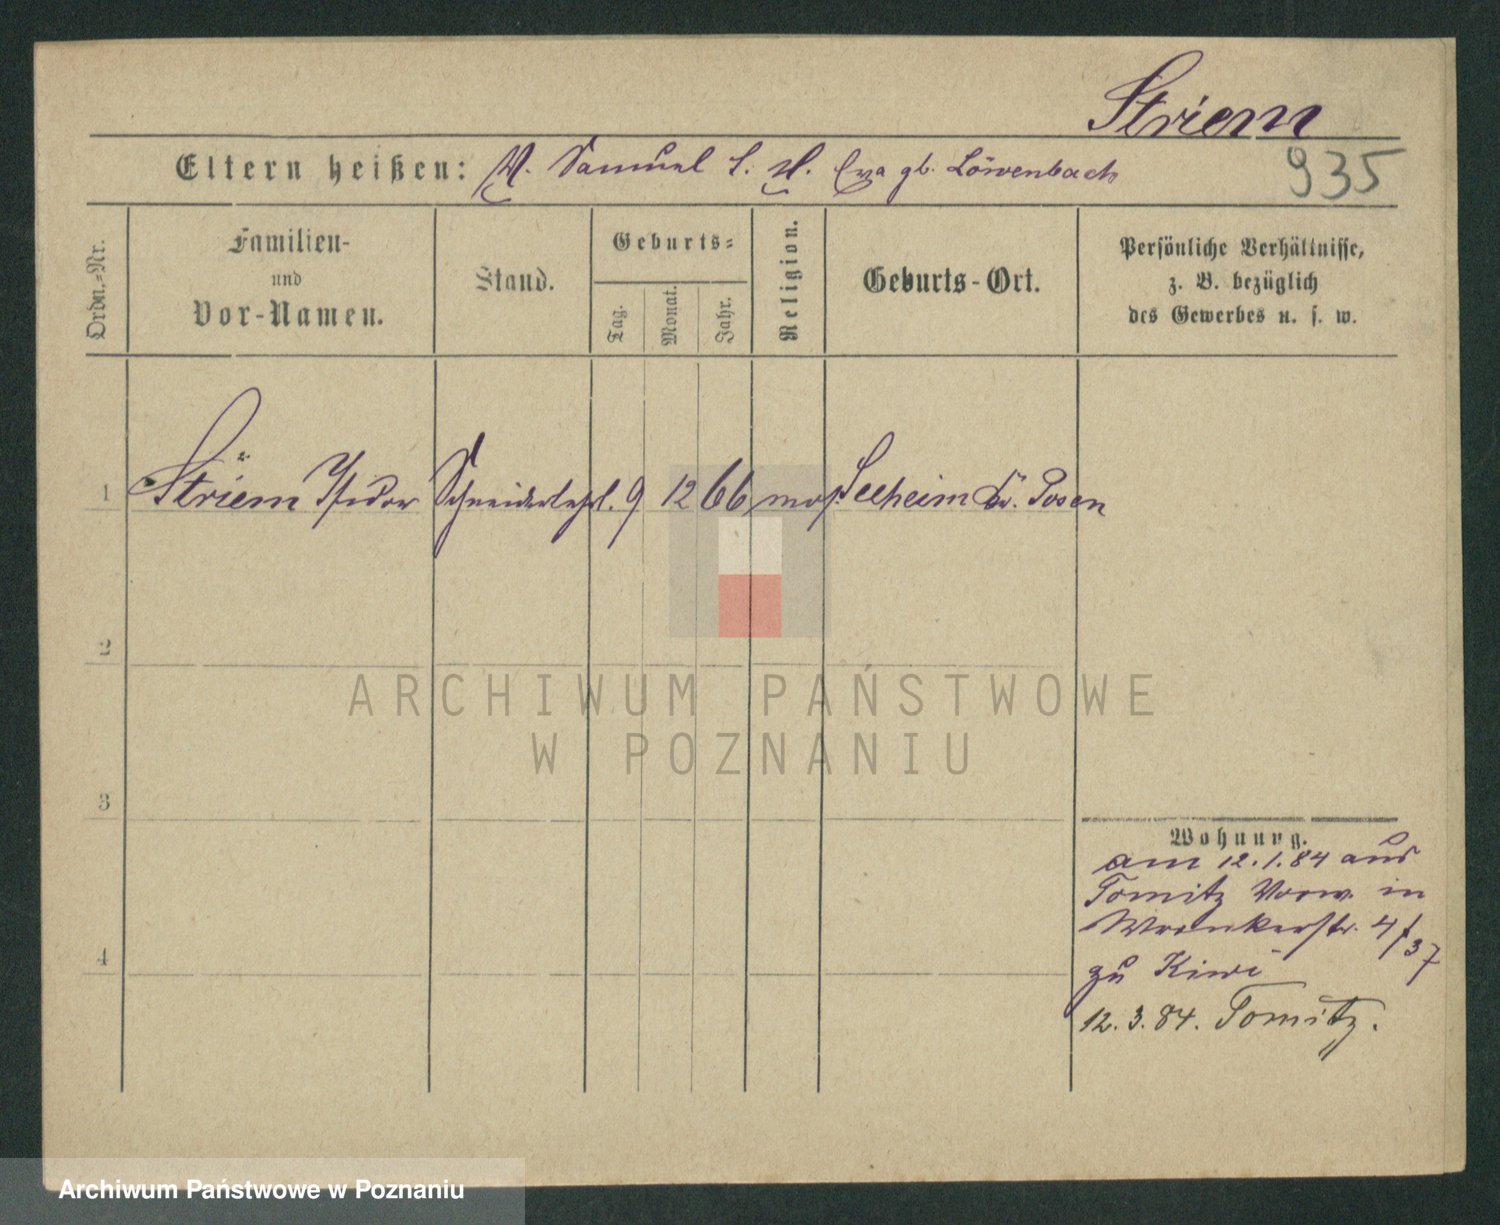 Striem
935
Eltern heißen: V. Samuel S. M. Eva gb. Löwenbach
Ordn.-Nr.
Familien-
und
Vor-Namen.
Stand.
Geburts-
Tag.
Monat.
Jahr.
Religion.
Geburts-Ort.
Persönliche Verhältnisse,
z. B. bezüglich
des Gewerbes u. s. w.
1 Striem Isidor Schneiderlehrl. 9 12 66 mos. Seeheim Kr. Posen
2
3
4
Wohnung.
am 12.1.84 aus
Tomitz Vorw. in
Wronkerstr. 4/37
zu Kiwi
12.3.84. Tomitz.
ARCHIWUM PAŃSTWOWE
W POZNANIU
Archiwum Państwowe w Poznaniu